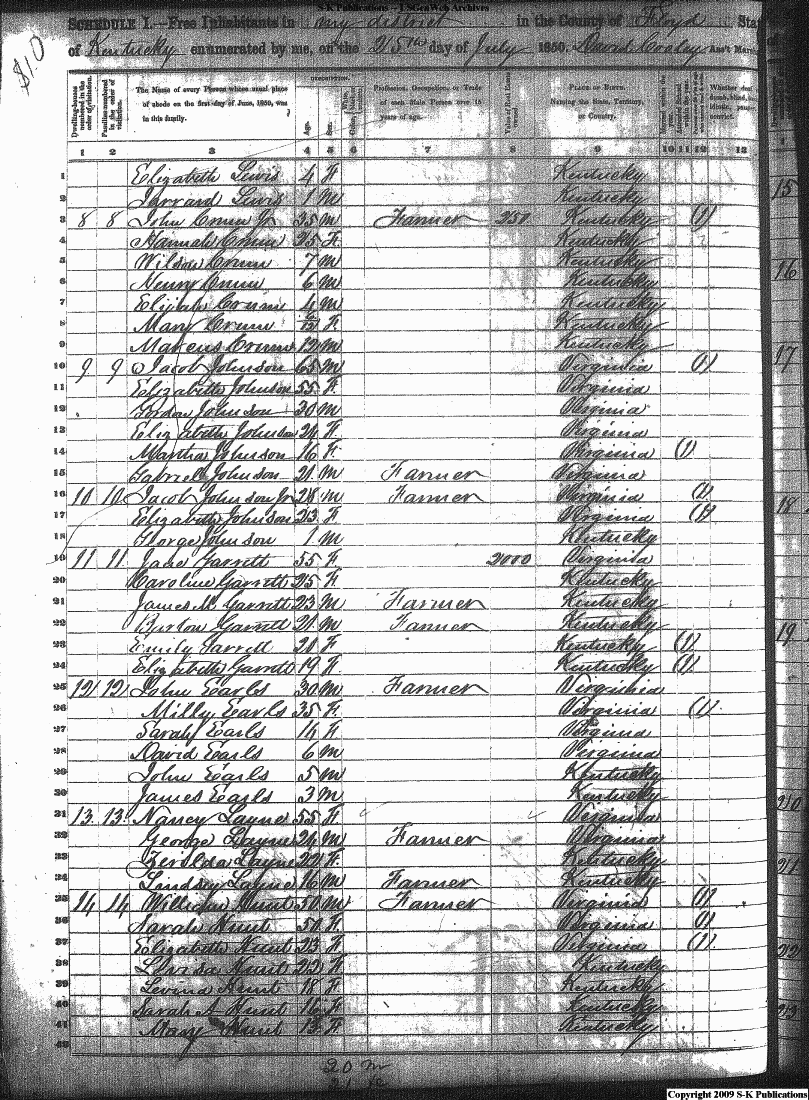 S-K Publications - USGenWeb Archives
SCHEDULE I.—Free Inhabitants in my district in the County of Floyd State
of Kentucky enumerated by me, on the 25th day of July 1850. David Cooley Ass't Mars
$10
Dwelling-houses numbered in the order of visitation. Families numbered in the order of visitation. The Name of every Person whose usual place of abode on the first day of June, 1850, was in this family. DESCRIPTION. Age. Sex. White, Profession, Occupation, or Trade of each Male Person over 15 years of age. Value of Real Estate owned PLACE OF BIRTH. Naming the State, Territory, or Country. Married within the year. Whether deaf
1 2 3 4 5 6 7 8 9 10 11 12 13
1 Elizabeth Lewis 4 F Kentucky
2 Jarrard Lewis 1 M Kentucky
3 8 8 John Crum Jr 35 M Farmer 250 Kentucky (1)
4 Hannah Crum 25 F Kentucky
5 Wilson Crum 7 M Kentucky
6 Henry Crum 6 M Kentucky
7 Elijah Crum 4 M Kentucky
8 Mary Crum F Kentucky
9 Marcus Crum 12 M Kentucky
10 9 9 Jacob Johnson 65 M Virginia (1)
11 Elizabeth Johnson 55 F Virginia
12 Jordan Johnson 30 M Virginia
13 Elizabeth Johnson 24 F Virginia
14 Martha Johnson 16 F Virginia (1)
15 Gabriel Johnson 21 M Farmer Virginia
16 10 10 Jacob Johnson Jr 28 M Farmer Virginia (1)
17 Elizabeth Johnson 23 F Virginia (1)
18 George Johnson 1 M Kentucky
19 11 11 Jane Garrett 55 F 2000 Virginia
20 Caroline Garrett 25 F Kentucky
21 James M Garrett 23 M Farmer Kentucky
22 Burton Garrett 21 M Farmer Kentucky
23 Emily Garrett 20 F Kentucky (1)
24 Elizabeth Garrett 19 F Kentucky (1)
25 12 12 John Earls 30 M Farmer Virginia
26 Milly Earls 35 F Virginia (1)
27 Sarah Earls 14 F Virginia
28 David Earls 6 M Virginia
29 John Earls 5 M Kentucky
30 James Earls 3 M Kentucky
31 13 13 Nancy Layne 55 F Virginia
32 George Layne 24 M Farmer Virginia
33 Zerelda Layne 22 F Kentucky
34 Lindsey Layne 16 M Farmer Kentucky
35 14 14 William Hunt 50 M Farmer Virginia (1)
36 Sarah Hunt 50 F Virginia (1)
37 Elizabeth Hunt 23 F Virginia (1)
38 Lovisa Hunt 22 F Kentucky
39 Levina Hunt 18 F Kentucky
40 Sarah A Hunt 16 F Kentucky
41 Mary Hunt 13 F Kentucky
42
20 m
21 fe
15
16
17
18
19
20
21
22
23
Copyright 2009 S-K Publications